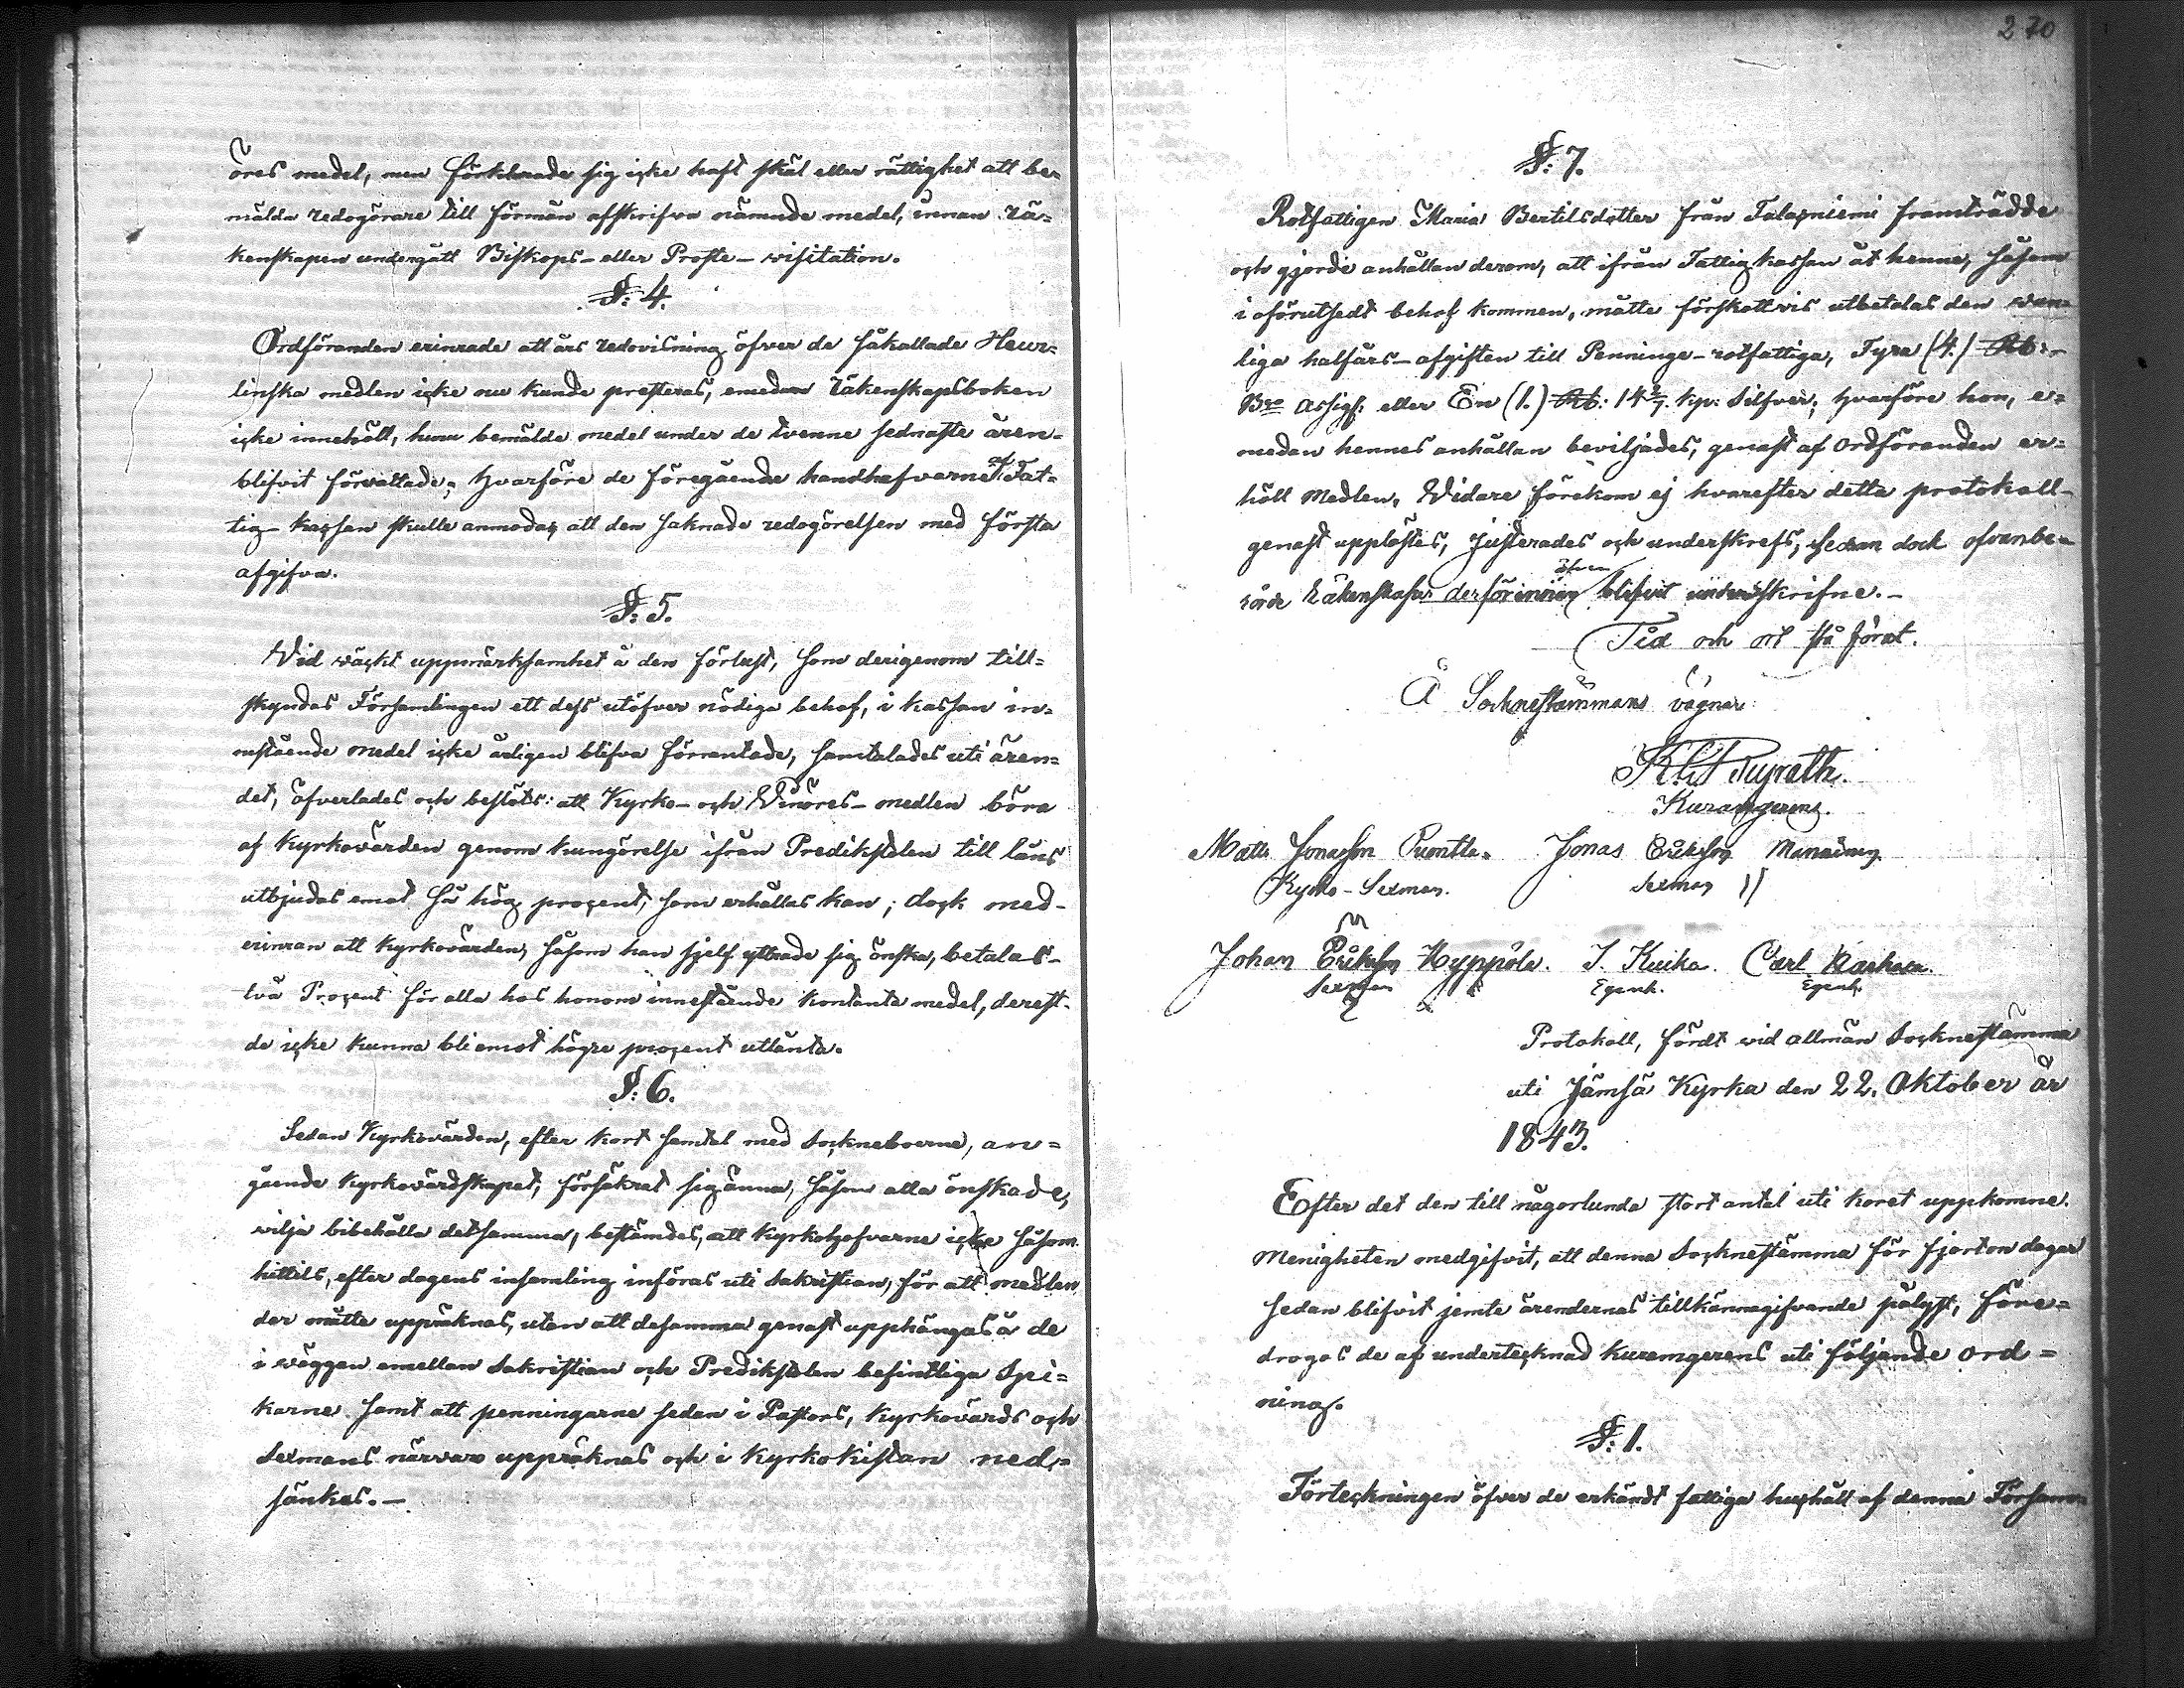 öres medel, men förklarade sig icke haft skäl eller rättighet att be-
mälda redogörare till förmån afskrifva nämnde medel, innan rä-
kenskapen undergått Biskops- eller Proste- visitation.
§: 4.
Ordföranden erinrade att års redovisning öfver de såkallade Heur-
linska medlen icke nu kunde presteras, emedan räkenskapsboken
icke innehöll, huru bemälde medel under de tvenne sednaste åren
blifvit förvaltade; hvarföre de föregående handhafvarne af Fat-
tig-kassan skulle anmodas att den saknade redogörelsen med första
afgifva.
§: 5.
Vid väckt uppmärksamhet å den förlust, som derigenom till-
skyndas Församlingen ett dess utöfver nödiga behof, i kassan in-
nestående medel icke årligen blifva förräntade, samtalades uti ären-
det, öfverlades och beslöts: att Kyrko- och Vinöres- medlen böra
af Kyrkovärden genom kungörelse ifrån Predikstolen till låns
utbjudas emot så hög procent, som erhållas kan; dock med
erinran att Kyrkovärden, såsom han sjelf yttrade sig önska, betalar
två Procent för alla hos honom innestående kontanta medel, derest
de icke kunna bli emot högre procent utlånta.
§: 6.
Sedan Kyrkovärden, efter kort samtal med Sockneboerne, an-
gående Kyrkovärdskapet, försäkrat sig ännu, såsom alla önskade,
vilja bibehålla detsamma, bestämdes, att Kyrkohofvarne icke såsom
hittils, efter dagens insamling införas uti Sakristian, för att medlen
der måtte uppräknas, utan att desamma genast upphängas å de
i väggen emellan Sakristian och Predikstolen befintliga Spi-
karne samt att penningarne sedan i Pastors, Kyrkovärds och
Sexmans närvaro uppräknas och i Kyrkokistan ned-
sänkas.-
270
§: 7.
Rotfattigen Maria Bertilsdotter från framträdde
och gjorde anhållan derom, att ifrån Fattigkassan åt henne, såsom
i oförutsedt behof kommen, måtte förskottvis utbetalas den van-
liga halfårs- afgiften till Penninge- rotfattiga, Fyra (4.) Rb:
Bco Assigf: eller En (1.) Rb: 14 2/7. kp: Silfver; hvarföre hon, e-
medan hennes anhållan beviljades, genast af Ordföranden er-
höll Medlen. Vidare förekom ej hvarefter detta protokoll
genast upplästes, justerades och underskrefs, sedan dock ofvanbe-
rörde Räkenskaper derförinnan äfven blifvit underskrifne.-
Tid och ort som förut.
Å Socknestämmans vägnar:
Kuraemgerens.
Matts Jonasson Jonas Eriksson
Kyrko-Sexman. Sexman
Johan Eriksson Hyppölä. J. Kuika. Carl
Sexman Egenh. Egenh.
Protokoll, fördt vid allmän Socknestämma
uti Jämsä Kyrka den 22. Oktober år
1843.
Efter det den till någorlunda stort antal uti koret uppkomne
Menigheten medgifvit, att denna Socknestämma för fjorton dagar
sedan blifvit jemte ärendernas tillkännagifvande pålyst, före-
drogos de af undertecknad kuraemgerens uti följande ord-
ning.
§: 1.
Förteckningen öfver de erkändt fattiga hushåll af denna Försam-